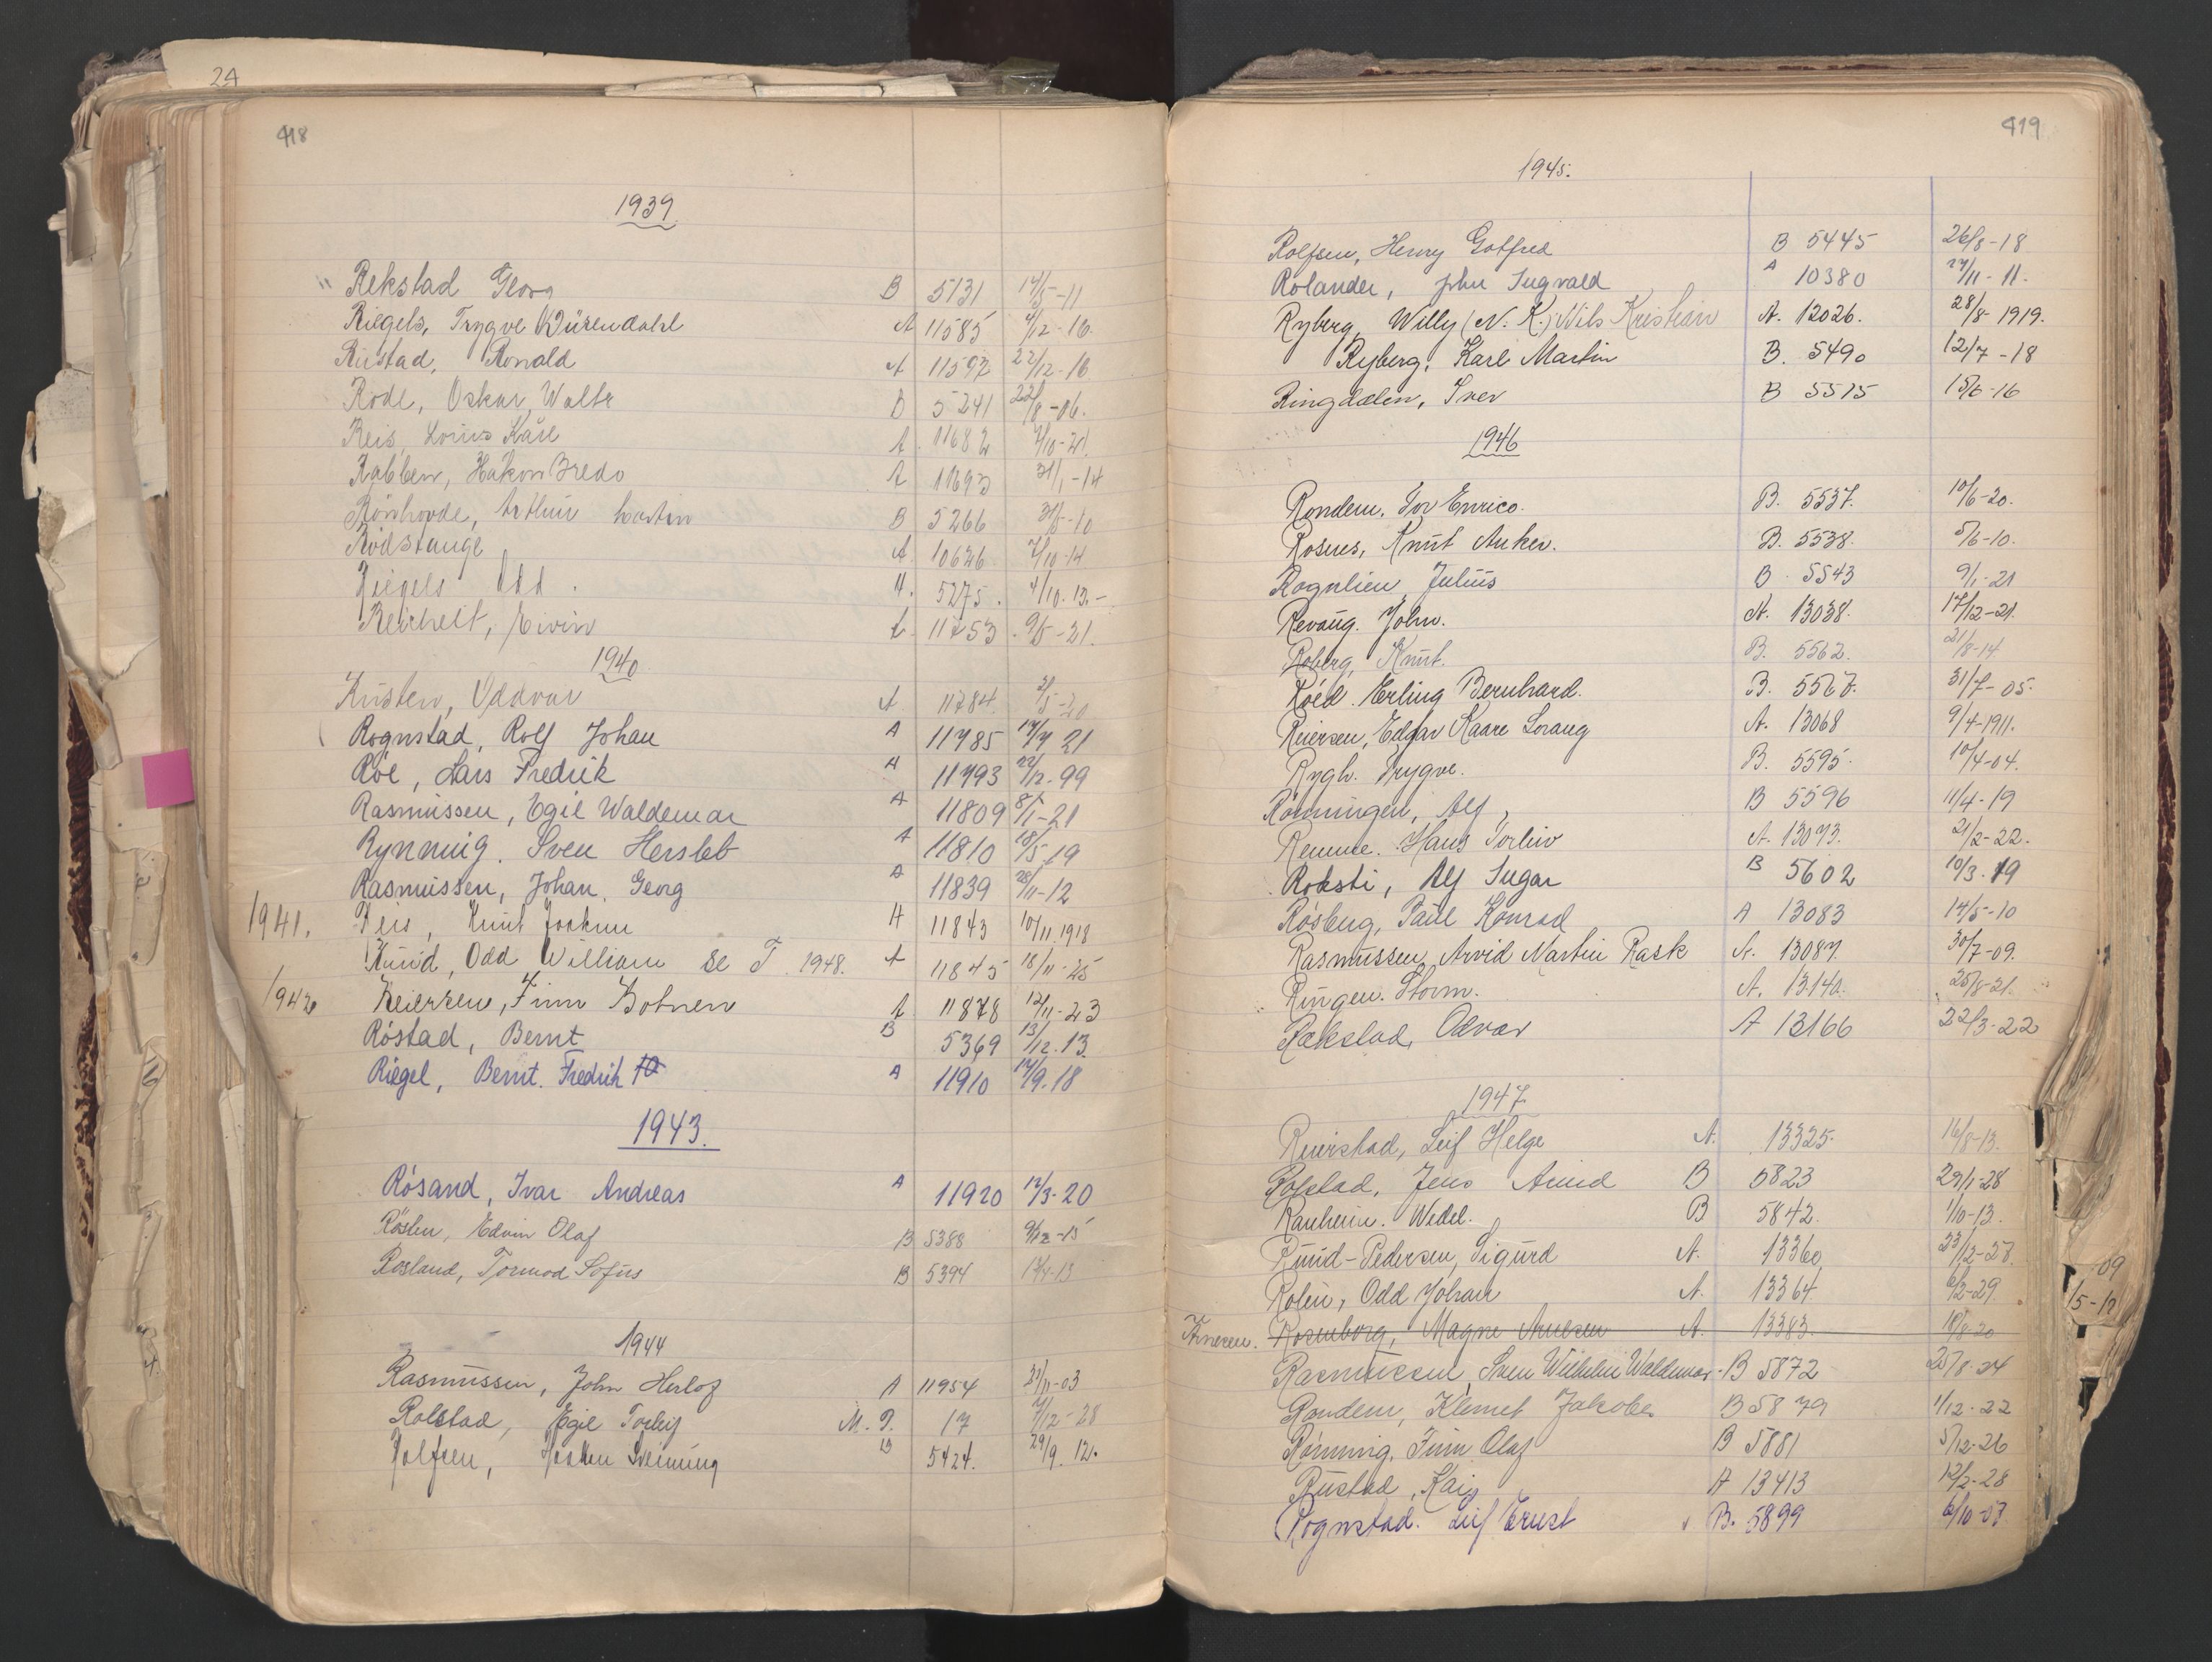 24
418
1939
Rekstad Georg B 5131 14/5-11
Riegels, Trygve Dürendahl A 11585 4/12-16.
Rustad, Ronald A 11592 22/12-16
Rode, Oskar Walte B 5241 22/8-06.
Reis, Louis Kåre A 11682 4/10-21.
Rabben, Håkon Bredo A 11693 31/1-14
Rönhovde, Arthur Martin B 5266 31/5-10
Rödstange A. 10626 7/10-14
Riegels Odd. A. 5275. 4/10. 13.-
Reichelt, Eivin A. 11753. 9/5-21.
1940.
Rusten, Oddvar A 11784. 31/5-20
Rognstad, Rolf Johan A 11785 14/4 21
Röe, Lars Fredrik A 11793 22/12.99
Rasmussen, Egil Waldemar A 11809 8/1-21
Rynning. Sven Hersleb A 11810 18/5 19
Rasmussen, Johan Georg A 11839 28/11-12
1941. Reis, Knut Joakim A 11843 10/11 1918
Ruud, Odd William Se T. 1948. A 11845 18/11-25
1942 Reiersen, Finn Botnen A 11878 12/11-23
Röstad, Bernt B 5369 13/12.13.
Riegel, Bernt Fredrik A 11910 14/9.18
1943.
Rösand, Ivar Andreas A 11920 12/3-20
Röslen, Edvin Olaf B 5388 9/12-15
Rosland, Tormod Sofus B 5394
1944
Rasmussen, John Herlof A 11954 21/11-03
Rolstad, Egil Torleif M. P. 17 4/12-28
Rolfsen, Håkon Svenning B 5424. 29/9. 12.
419
1945.
Rolfsen, Henry Gotfred B 5445 26/8-18
Rolander, John Ingvald A 10380 24/11-11.
Ryberg, Willy (N. K.) Nils Kristian A. 12026. 28/8-1919.
Ryberg, Karl Martin B. 5490 12/7-18
Ringdalen, Iver B 5515 15/6-16
1946
Rondem, Tor Enrico. B. 5537. 10/6-20.
Rosnes, Knut Anker. B. 5538. 5/6-10.
Rognlien, Julius B. 5543 9/1-21
Revaug. John. A. 13038. 17/12-21.
Roberg, Knut. B. 5562. 21/8-14
Röed. Erling Bernhard. B. 5567. 31/7-05.
Reiersen, Edgar Kaare Lorang A. 13068 9/4-1911.
Rygh. Trygve. B. 5595. 10/4-04.
Rönningen, Alf B 5596 11/4-19
Remme. Hans Torleiv A. 13073. 21/2-22.
Roksti, Alf Ingar B 5602 10/3.19
Rösberg, Paul Konrad A 13083 14/5-10
Rasmussen, Arvid Martin Rask A. 13087. 30/7-09.
Ringen. Storm. A. 13140. 25/8-21.
Rækstad, Odvar A 13166 22/3-22
1947
Reierstad, Leif Helge A. 13325. 16/8-13.
Rolstad, Jens Arvid B 5823 29/1-28
Ranheim. Widel. B 5842. 1/10-13.
Ruud-Pedersen, Sigurd A. 13360 23/12-28.
Rolin, Odd Johan A. 13364 6/2-29
Arnesen. Rosenborg, Magne Arnesen A. 13383. 18/8-20
Rasmussen, Sven Wilhelm Waldemar. B 5872 25/8-24
Rondem, Klemet Jakobs B 5879 1/12-22
Rönning, Finn Olaf B 5881 5/12-26
Rustad, Kaij A 13413 12/2-28
Rognstad. Leif Ernst B. 5899 6/10-07
09
/5-12